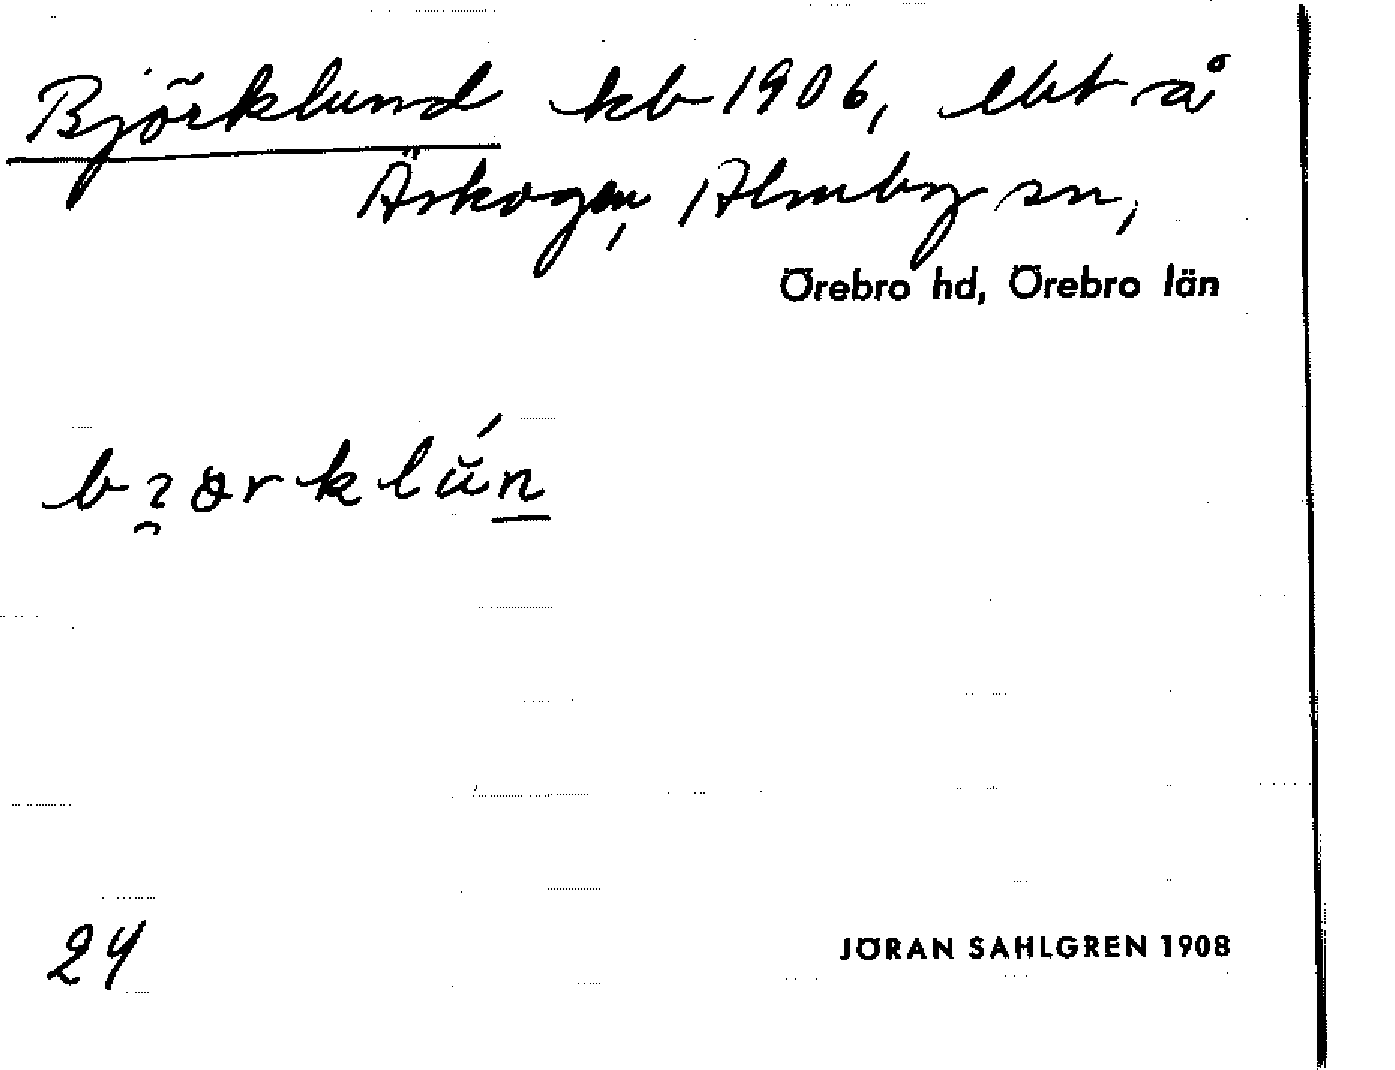 Björklund kb 1906, lht å
Äskogen, Almby sn,
Örebro hd, Örebro län
bɿ̯ɞrklún
24
JÖRAN SAHLGREN 1908